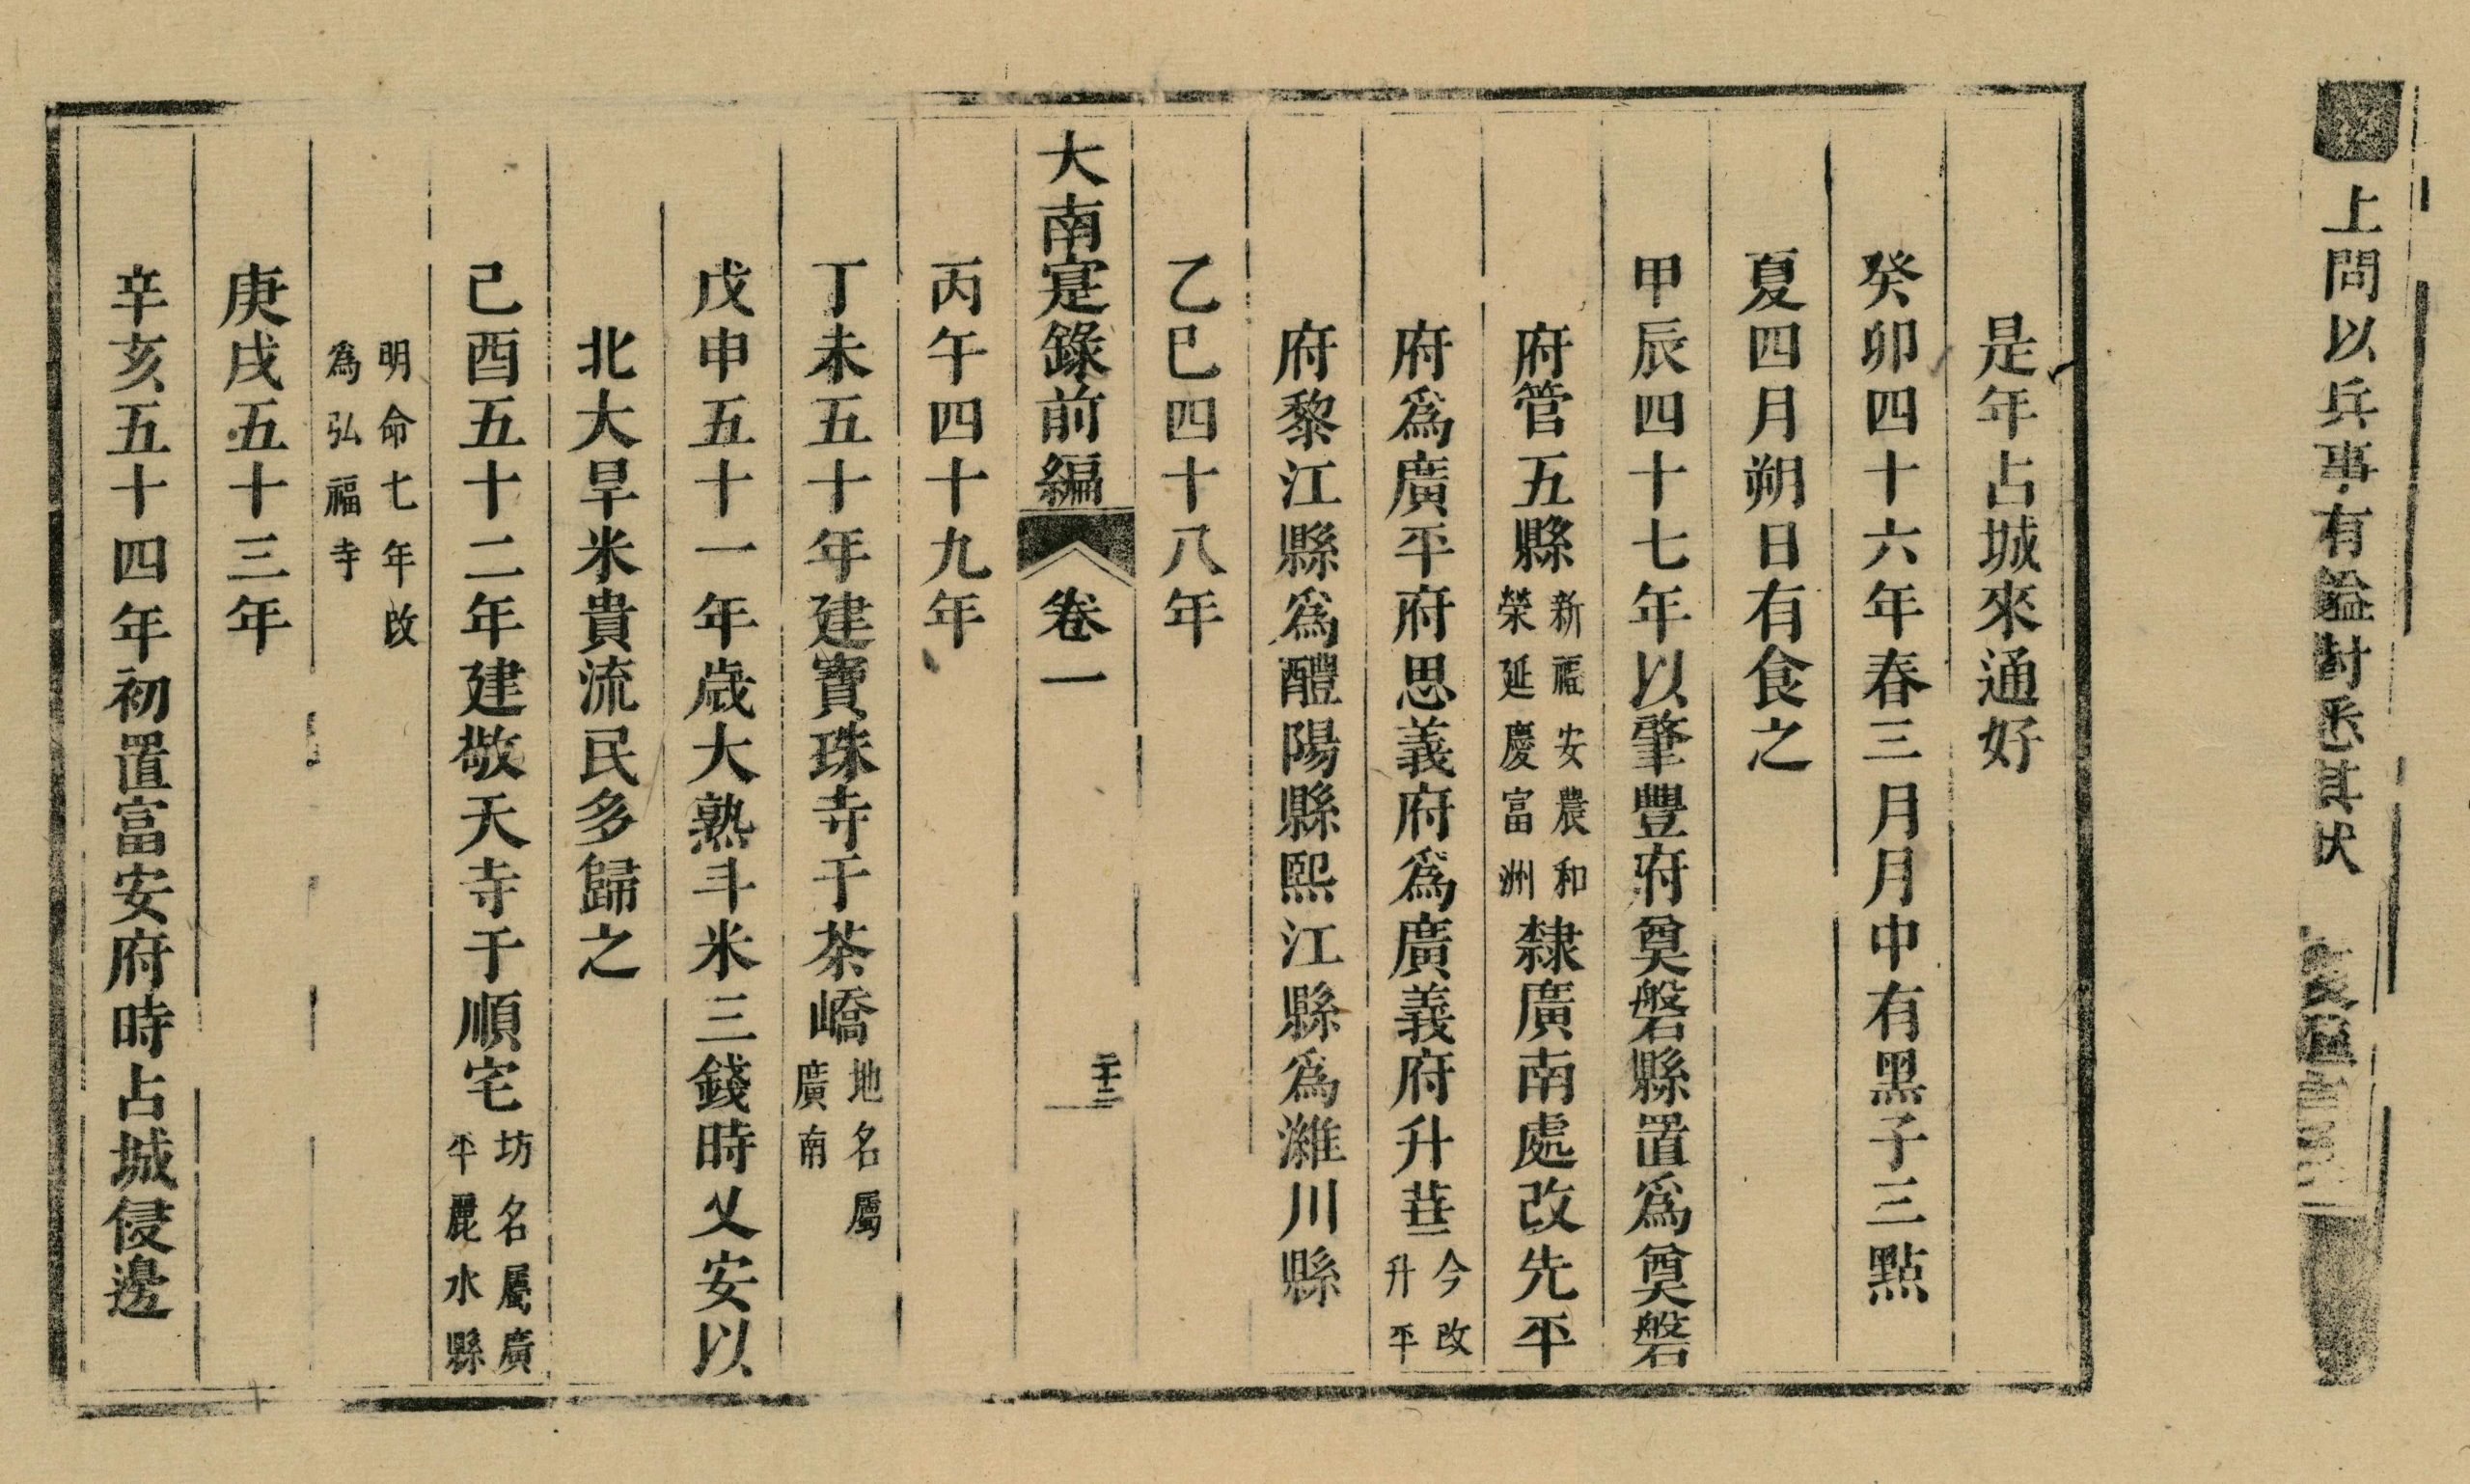 上問以兵事有
是年占城來通好
癸卯四十六年春三月月中有黑子三點
夏四月朔日有食之
甲辰四十七年以肇豐府奠磐縣置爲奠磐
府管五縣新福安農和榮延慶富洲隸廣南處改先平
府爲廣平府思義府爲廣義府升華今改升平
府黎江縣爲醴陽縣熙江縣爲濰川縣
乙巳四十八年
大南寔錄前編 卷一
丙午四十九年
丁未五十年建寶珠寺于茶嶠地名屬廣南
戊申五十一年歲大熟斗米三錢時乂安以
北大旱米貴流民多歸之
己酉五十二年建敬天寺于順宅坊名屬廣平麗水縣
明命七年改爲弘福寺
庚戌五十三年
辛亥五十四年初置富安府時占城侵邊